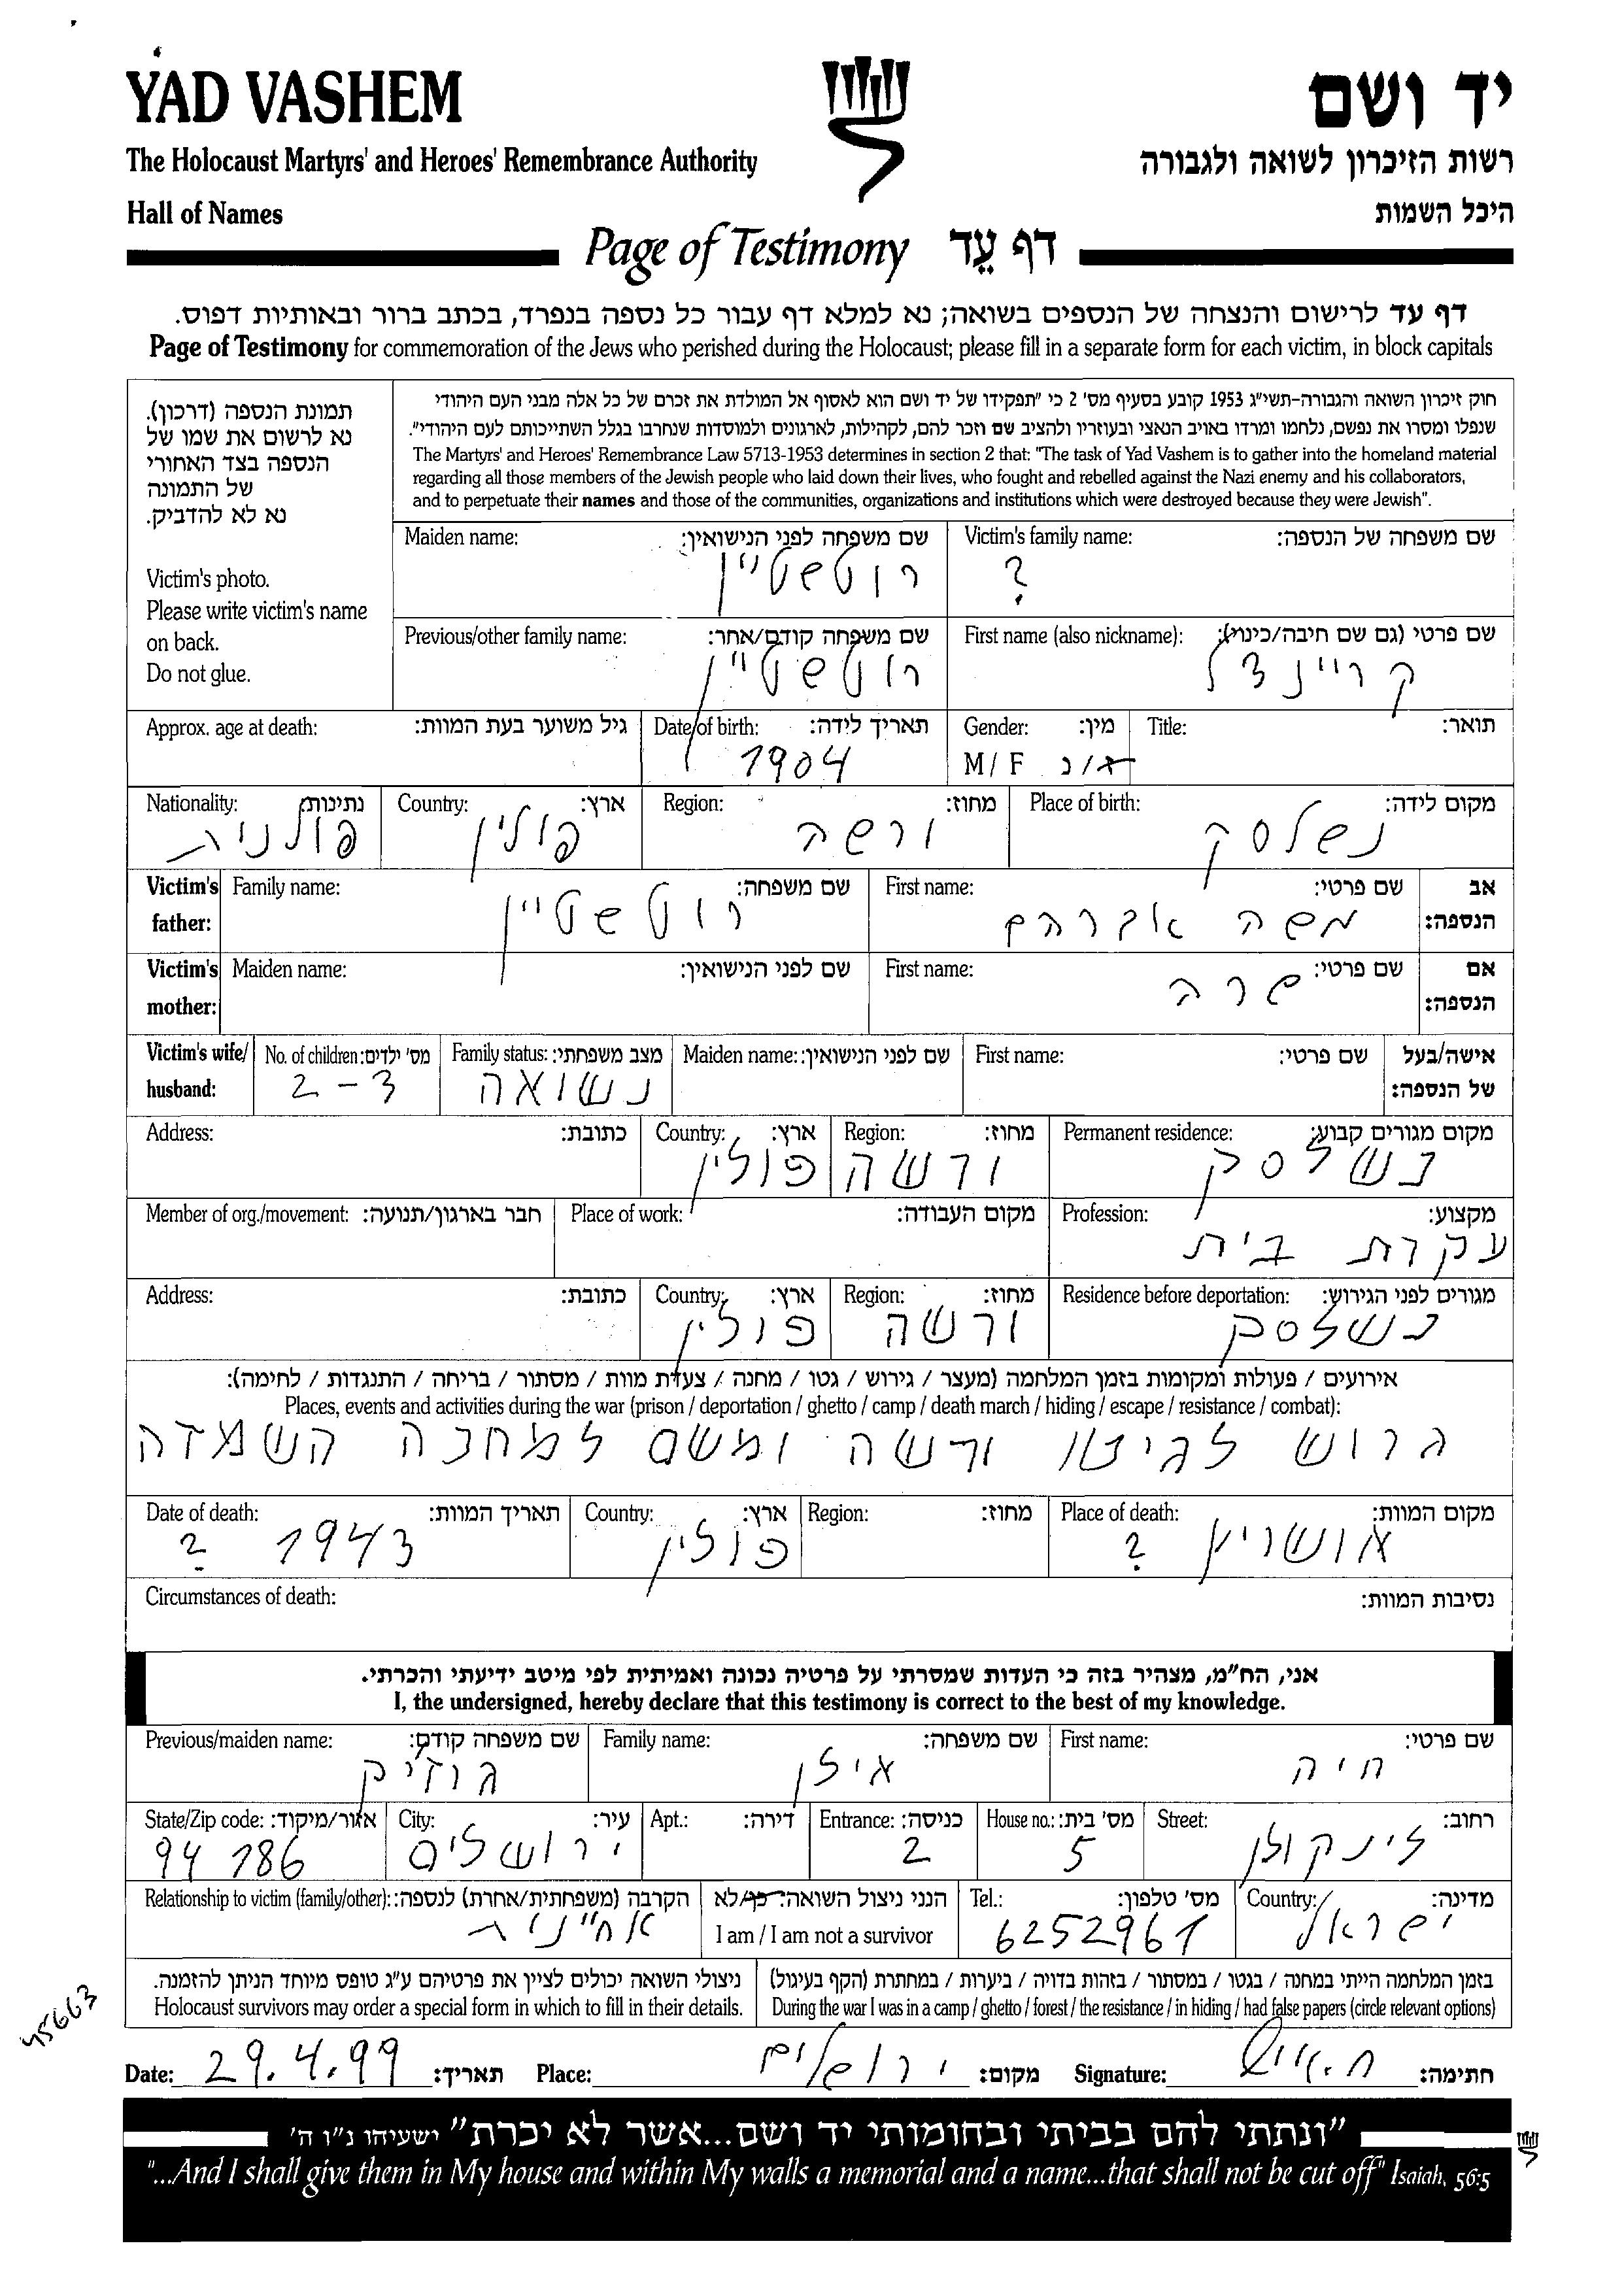 YAD VASHEM
יד ושם
The Holocaust Martyrs' and Heroes' Remembrance Authority
רשות הזיכרון לשואה ולגבורה
Hall of Names
היכל השמות
Page of Testimony דף עֵד
דף עד לרישום והנצחה של הנספים בשואה; נא למלא דף עבור כל נספה בנפרד, בכתב ברור ובאותיות דפוס.
Page of Testimony for commemoration of the Jews who perished during the Holocaust; please fill in a separate form for each victim, in block capitals
תמונת הנספה (דרכון).
נא לרשום את שמו של
הנספה בצד האחורי
של התמונה
נא לא להדביק.
Victim's photo.
Please write victim's name
on back.
Do not glue.
חוק זיכרון השואה והגבורה-תשי"ג 1953 קובע בסעיף מס' 2 כי "תפקידו של יד ושם הוא לאסוף אל המולדת את זכרם של כל אלה מבני העם היהודי
שנפלו ומסרו את נפשם, נלחמו ומרדו באויב הנאצי ובעוזריו ולהציב שם וזכר להם, לקהילות, לארגונים ולמוסדות שנחרבו בגלל השתייכותם לעם היהודי".
The Martyrs' and Heroes' Remembrance Law 5713-1953 determines in section 2 that: "The task of Yad Vashem is to gather into the homeland material
regarding all those members of the Jewish people who laid down their lives, who fought and rebelled against the Nazi enemy and his collaborators,
and to perpetuate their names and those of the communities, organizations and institutions which were destroyed because they were Jewish".
Victim's family name: שם משפחה של הנספה:
?
Maiden name: שם משפחה לפני הנישואין:
רוטשטיין
First name (also nickname): שם פרטי (גם שם חיבה/כינוי):
קריינדל
Previous/other family name: שם משפחה קודם/אחר:
רוטשטיין
Title: תואר:
Gender: מין:
M / F ז/נ
Date of birth: תאריך לידה:
1904
Approx. age at death: גיל משוער בעת המוות:
Place of birth: מקום לידה:
נשלסק
Region: מחוז:
ורשה
Country: ארץ:
פולין
Nationality: נתינות:
פולנית
Victim's father: אב הנספה:
First name: שם פרטי:
משה אברהם
Family name: שם משפחה:
רוטשטיין
Victim's mother: אם הנספה:
First name: שם פרטי:
שרה
Maiden name: שם לפני הנישואין:
Victim's wife/ husband: אישה/בעל של הנספה:
First name: שם פרטי:
Maiden name: שם לפני הנישואין:
Family status: מצב משפחתי:
נשואה
No. of children: מס' ילדים:
2-3
Permanent residence: מקום מגורים קבוע:
נשלסק
Region: מחוז:
ורשה
Country: ארץ:
פולין
Address: כתובת:
Profession: מקצוע:
עקרת בית
Place of work: מקום העבודה:
Member of org./movement: חבר בארגון/תנועה:
Residence before deportation: מגורים לפני הגירוש:
נשלסק
Region: מחוז:
ורשה
Country: ארץ:
פולין
Address: כתובת:
אירועים / פעולות ומקומות בזמן המלחמה (מעצר / גירוש / גטו / מחנה / צעדת מוות / מסתור / בריחה / התנגדות / לחימה):
Places, events and activities during the war (prison / deportation / ghetto / camp / death march / hiding / escape / resistance / combat):
גרוש לגיטו ורשה ומשם למחנה השמדה
Place of death: מקום המוות:
אושויץ ?
Region: מחוז:
Country: ארץ:
פולין
Date of death: תאריך המוות:
1943 ?
Circumstances of death: נסיבות המוות:
אני, הח"מ, מצהיר בזה כי העדות שמסרתי על פרטיה נכונה ואמיתית לפי מיטב ידיעתי והכרתי.
I, the undersigned, hereby declare that this testimony is correct to the best of my knowledge.
First name: שם פרטי:
חיה
Family name: שם משפחה:
אילן
Previous/maiden name: שם משפחה קודם:
גוזיק
Street: רחוב:
לינקולן
House no.: מס' בית:
5
Entrance: כניסה:
2
Apt.: דירה:
City: עיר:
ירושלים
State/Zip code: אזור/מיקוד:
94186
Country: מדינה:
ישראל
Tel.: מס' טלפון:
6252961
הנני ניצול השואה: כן/לא
I am / I am not a survivor
Relationship to victim (family/other): הקרבה (משפחתית/אחרת) לנספה:
אחיינית
בזמן המלחמה הייתי במחנה / בגטו / במסתור / בזהות בדויה / ביערות / במחתרת (הקף בעיגול)
During the war I was in a camp / ghetto / forest / the resistance / in hiding / had false papers (circle relevant options)
ניצולי השואה יכולים לציין את פרטיהם ע"ג טופס מיוחד הניתן להזמנה.
Holocaust survivors may order a special form in which to fill in their details.
45663
Date: 29.4.99 תאריך:
Place: ירושלים מקום:
Signature: חתימה:
"ונתתי להם בביתי ובחומותי יד ושם...אשר לא יכרת" ישעיהו נ"ו ה'
"...And I shall give them in My house and within My walls a memorial and a name...that shall not be cut off" Isaiah, 56:5